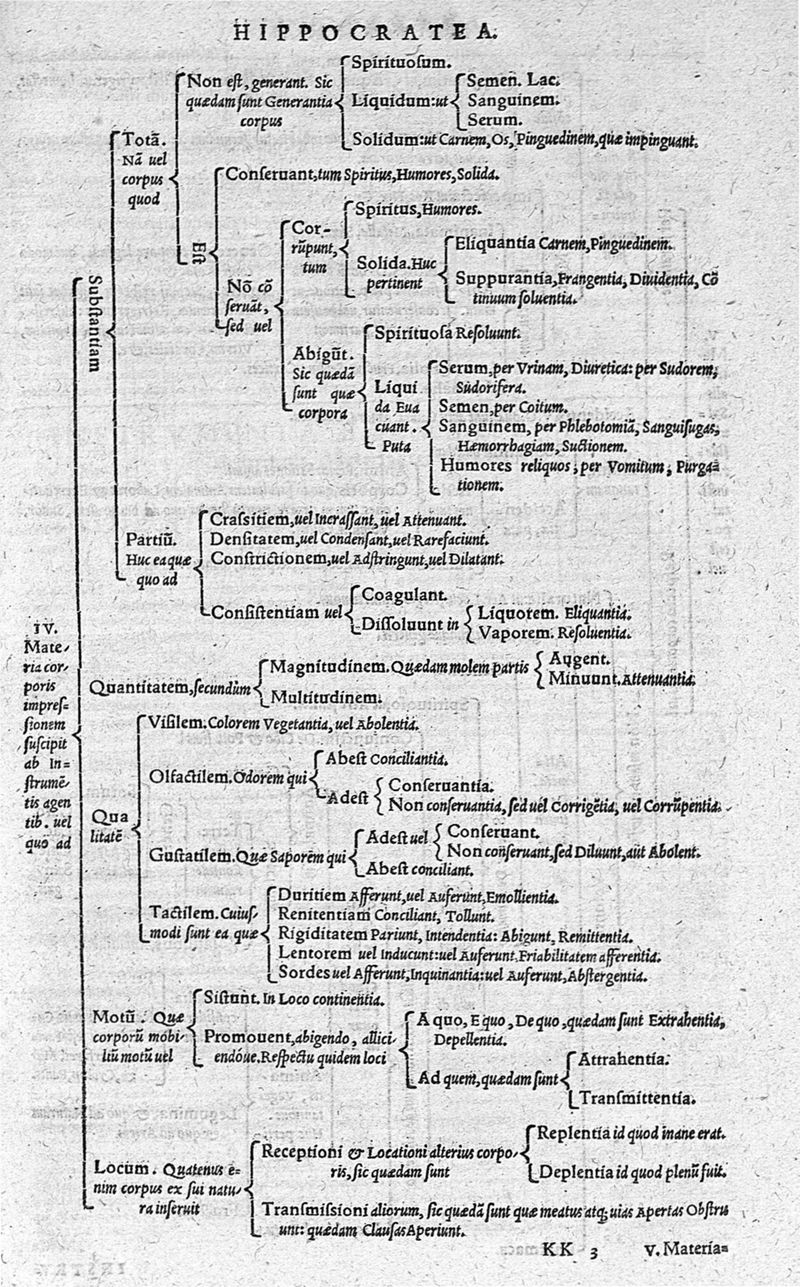 HIPPOCRATEA.
Spirituosum.
Non est, generant. Sic
quædam sunt Generantia
corpus
Liquidum: ut
Semen. Lac.
Sanguinem.
Serum.
Solidum: ut Carnem, Os, Pinguedinem, quæ impinguant.
Totā.
Nā uel
corpus
quod
Est
Conseruant, tum Spiritus, Humores, Solida.
Nō cō
seruāt,
sed uel
Cor-
rūpunt,
tum
Spiritus, Humores.
Solida. Huc
pertinent
Eliquantia Carnem, Pinguedinem.
Suppurantia, Frangentia, Diuidentia, Cō
tinuum soluentia.
Abigūt.
Sic quædā
sunt quæ
corpora
Spirituosa Resoluunt.
Liqui
da Eua
cuant.
Puta
Serum, per Vrinam, Diuretica: per Sudorem,
Sudorifera.
Semen, per Coitum.
Sanguinem, per Phlebotomiā, Sanguisugas,
Hæmorrhagiam, Suctionem.
Humores reliquos, per Vomitum, Purga=
tionem.
Substantiam
Partiū.
Huc ea quæ
quo ad
Crassitiem, uel Incrassant, uel Attenuant.
Densitatem, uel Condensant, uel Rarefaciunt.
Constrictionem, uel Adstringunt, uel Dilatant.
Consistentiam uel
Coagulant.
Dissoluunt in
Liquorem. Eliquantia.
Vaporem. Resoluentia.
IV.
Mate-
ria cor-
poris
impres-
sionem
suscipit
ab In=
strumē-
tis agen
tib. uel
quo ad
Quantitatem, secundūm
Magnitudinem. Quædam molem partis
Augent.
Minuunt. Attenuantia.
Multitudinem.
Qua
litatē
Visilem. Colorem Vegetantia, uel Abolentia.
Olfactilem. Odorem qui
Abest Conciliantia.
Adest
Conseruantia.
Non conseruantia, sed uel Corrigētia, uel Corrūpentia.
Gustatilem. Quæ Saporem qui
Adest uel
Conseruant.
Non conseruant, sed Diluunt, aut Abolent.
Abest conciliant.
Tactilem. Cuius-
modi sunt ea quæ
Duritiem Afferunt, uel Auferunt, Emollientia.
Renitentiam Conciliant, Tollunt.
Rigiditatem Pariunt, Intendentia: Abigunt, Remittentia.
Lentorem uel Inducunt: uel Auferunt, Friabilitatem afferentia.
Sordes uel Afferunt, Inquinantia: uel Auferunt, Abstergentia.
Motū. Quæ
corporū mobi-
liū motū uel
Sistunt. In Loco continentia.
Promouent, abigendo, allici-
endóue. Respectu quidem loci
A quo, E quo, De quo, quædam sunt Extrahentia,
Depellentia.
Ad quem, quædam sunt
Attrahentia.
Transmittentia.
Locum. Quatenus e-
nim corpus ex sui natu-
ra inseruit
Receptioni & Locationi alterius corpo-
ris, sic quædam sunt
Replentia id quod inane erat.
Deplentia id quod plenū fuit.
Transmissioni aliorum, sic quædā sunt quæ meatus atq; uias Apertas Obstru
unt: quædam Clausas Aperiunt.
KK 3
V. Materia=